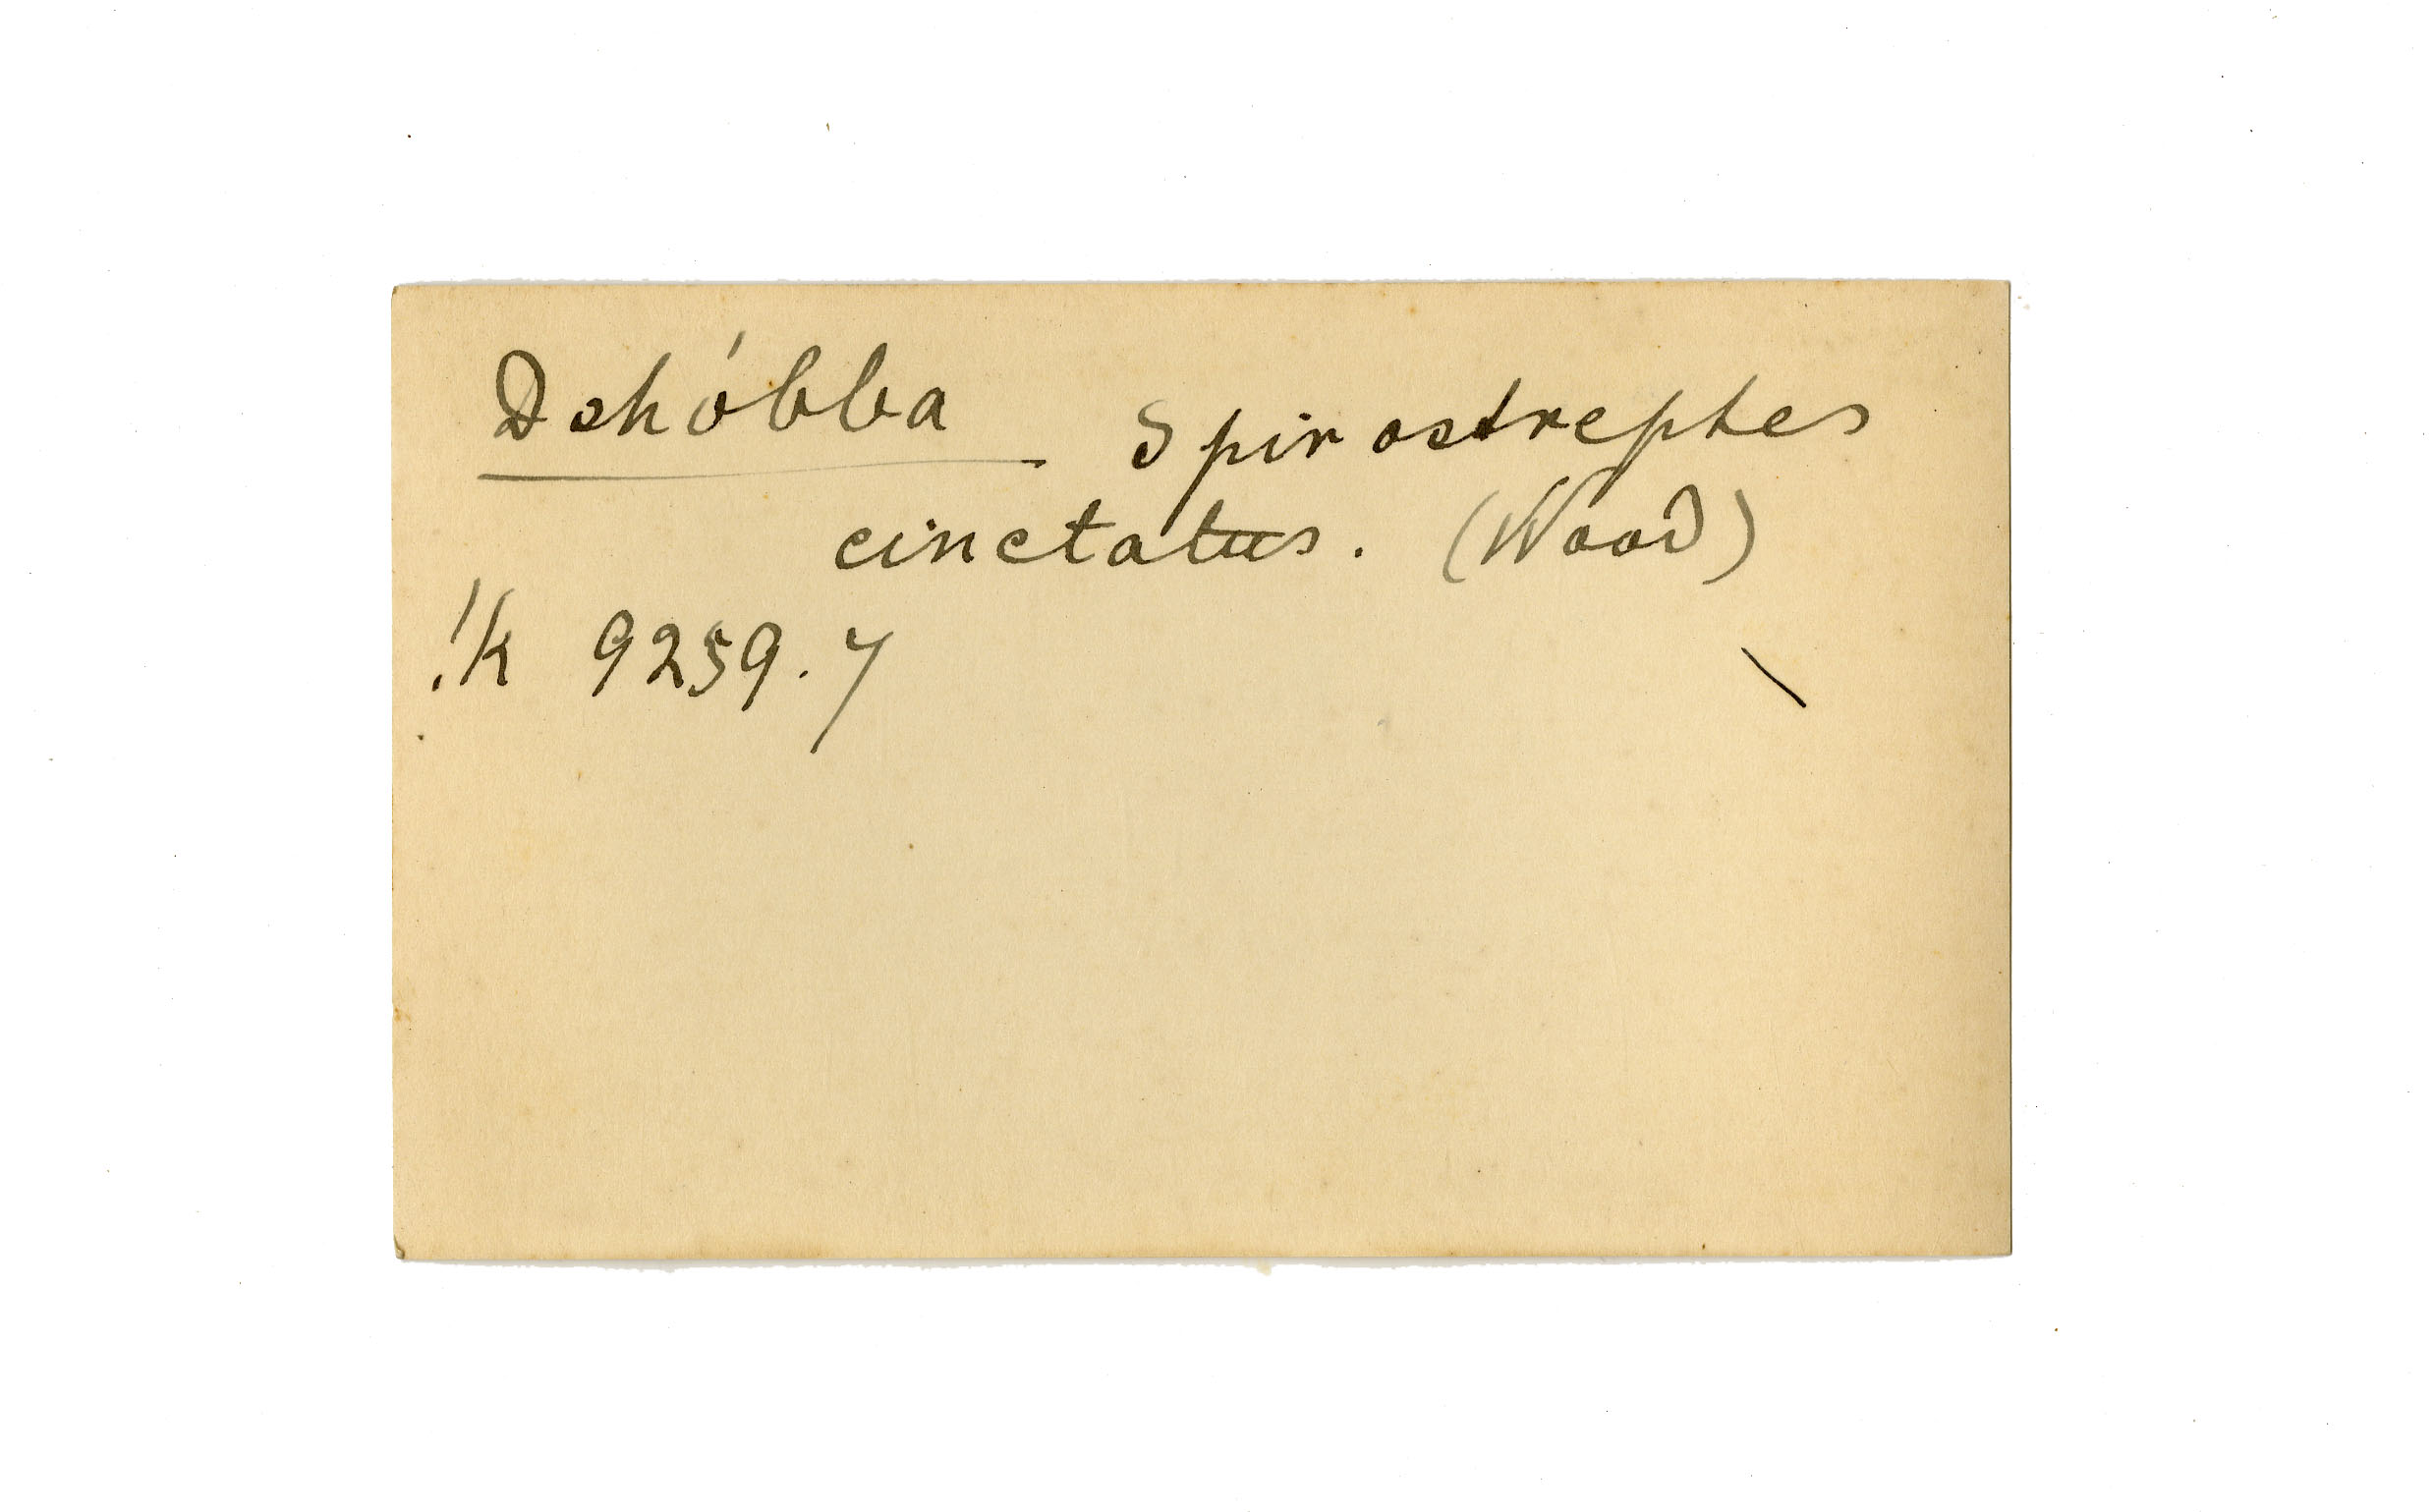 Dshóbba Spirostreptes
cinctatus. (Wood)
!k 9259.7